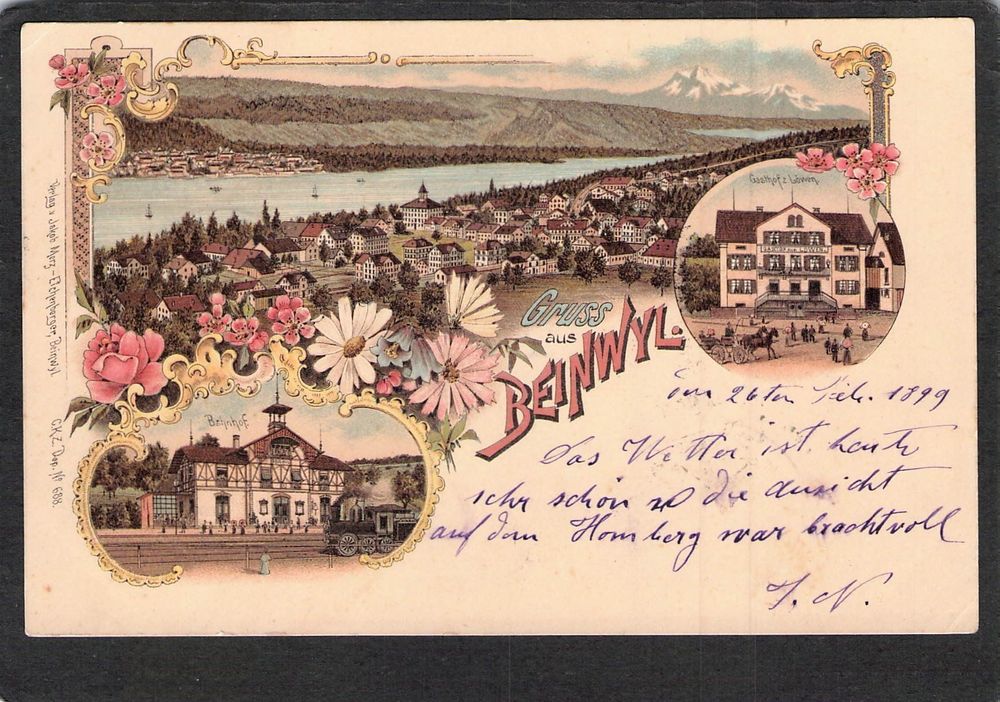 Gasthof z Löwen.
Gruss
aus
BEINWYL.
Bahnhof.
den 26ten Feb. 1899
Das Wetter ist heute
sehr schön so die ansicht
auf dem Homberg war brachtvoll
J. N.
Verlag v. Jakob Merz-Eichenberger, Beinwyl.
C.K.Z. Dep. No 688.